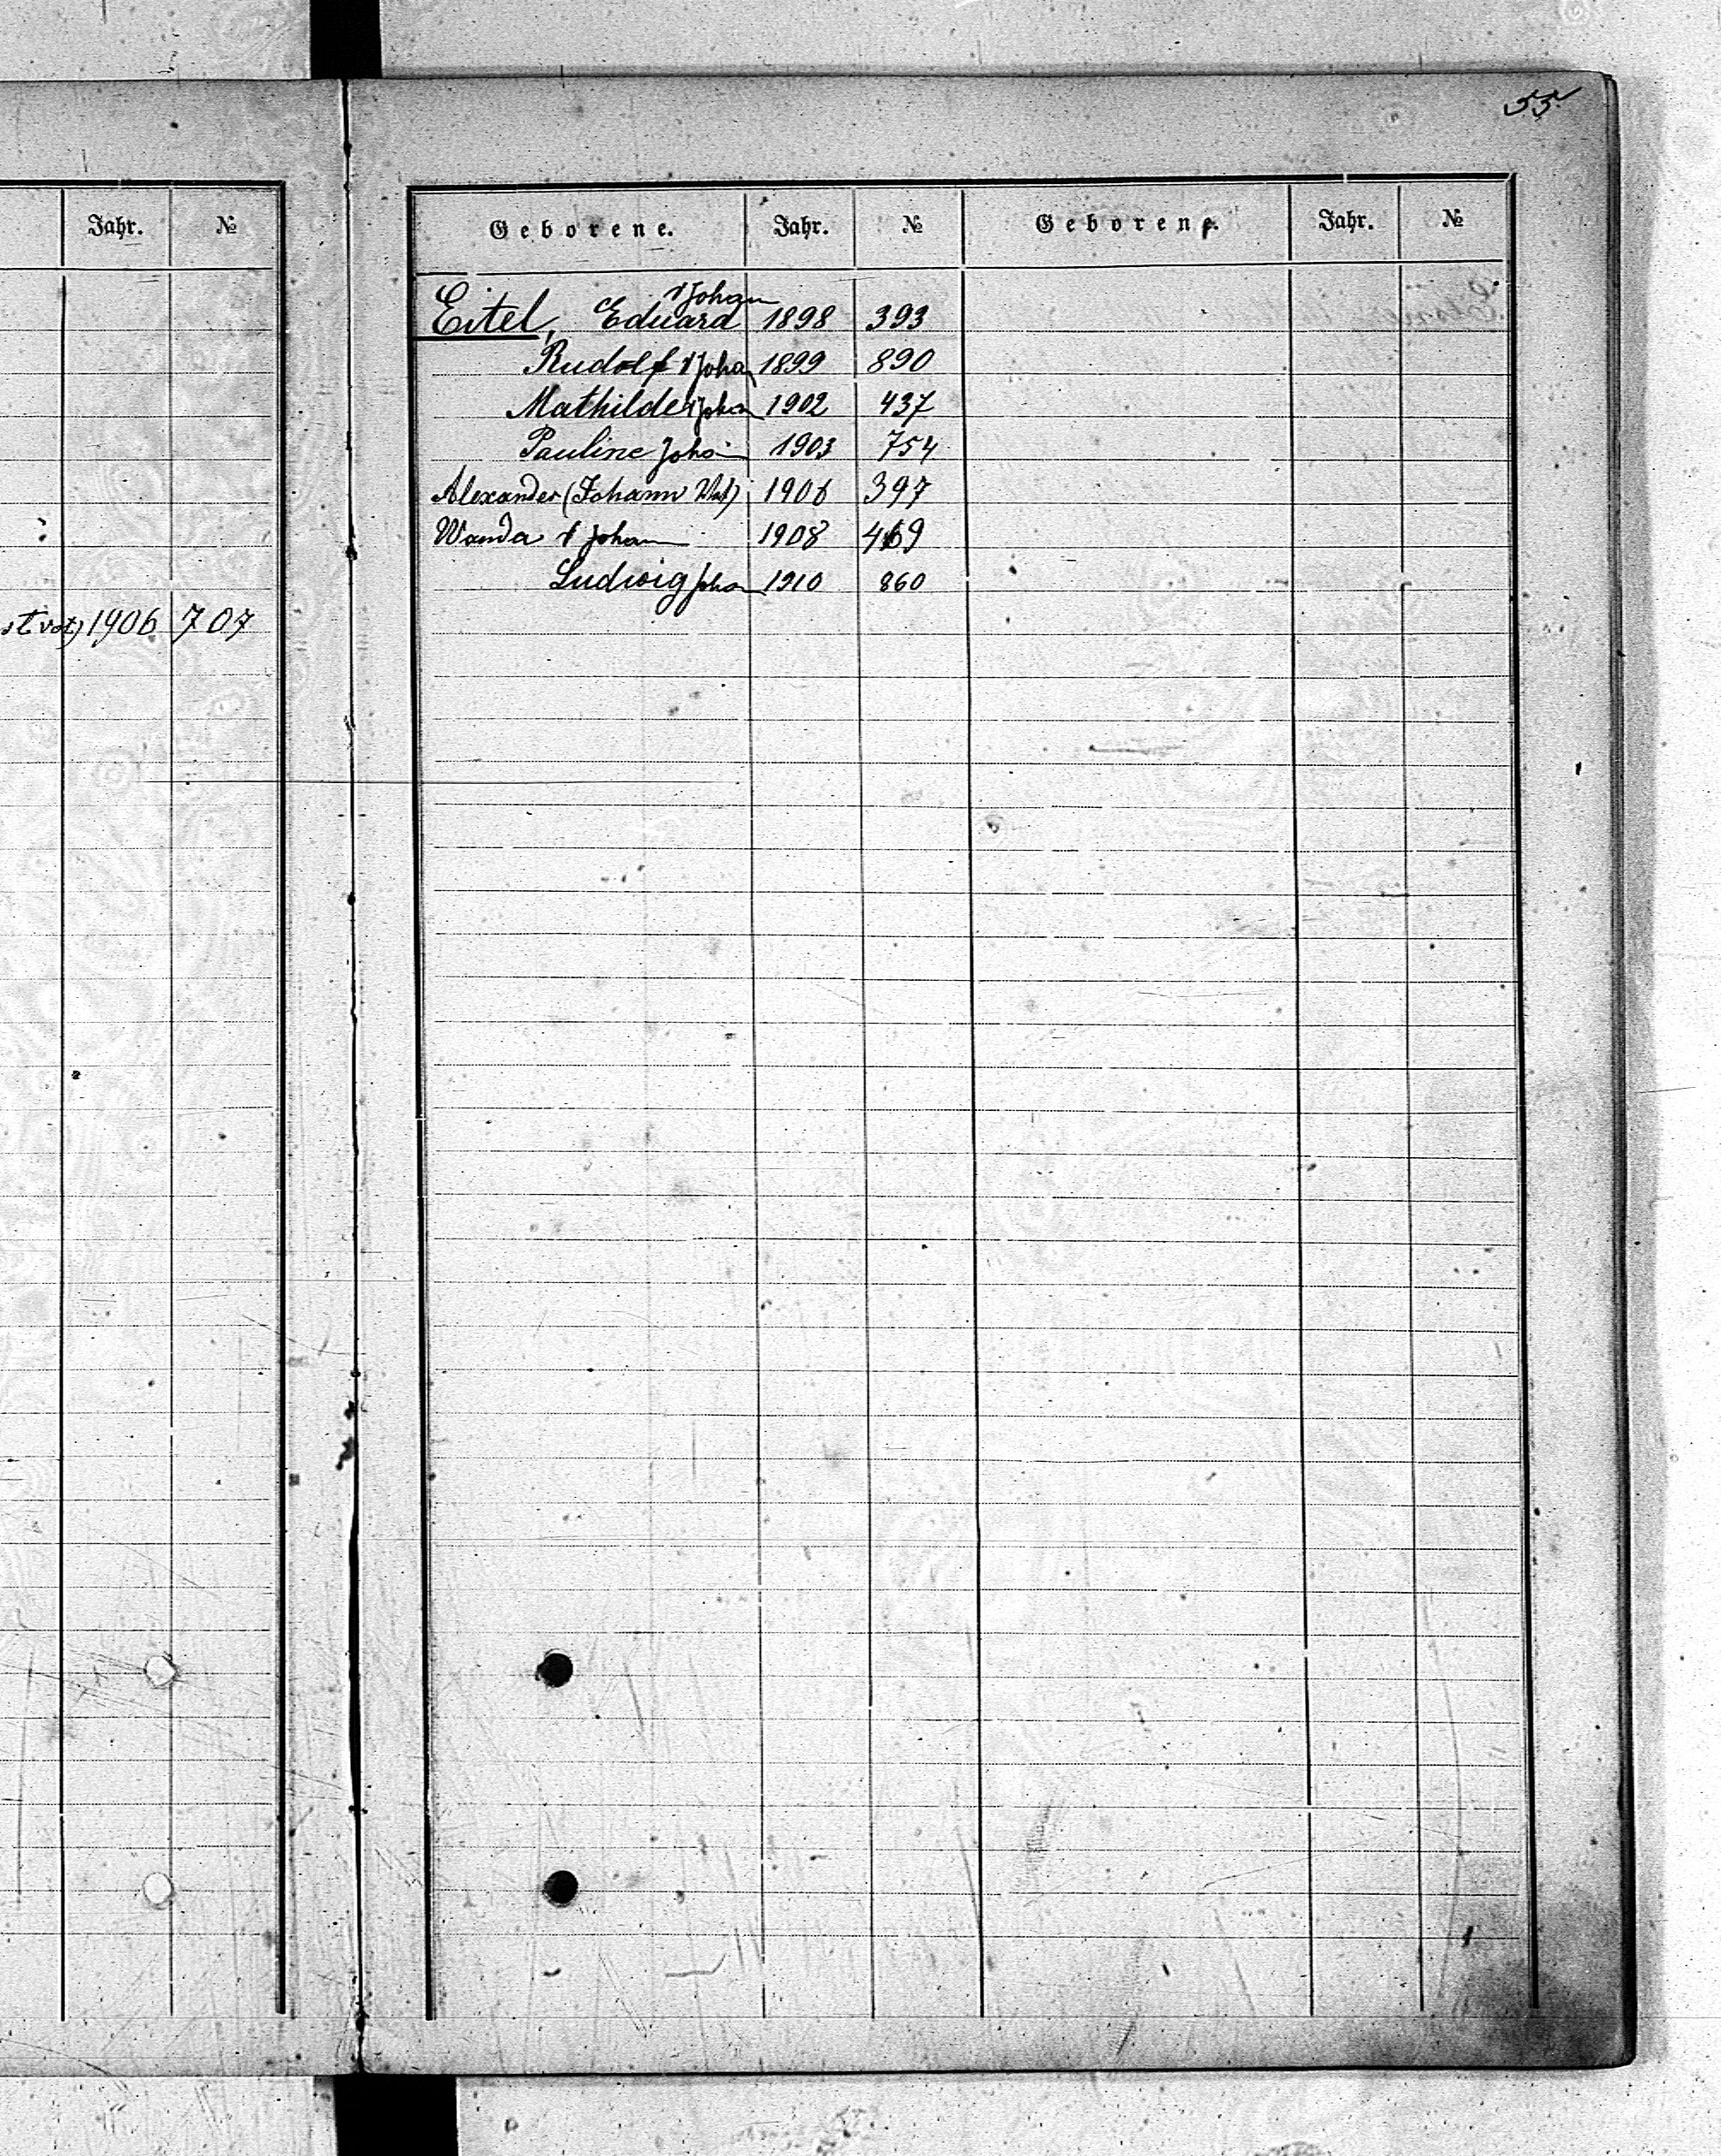 55
Jahr. №
Geborene. Jahr. № Geborene. Jahr. №
v Johan
Eitel, Eduard 1898 393
Rudolf v Johan 1899 890
Mathilde v Johan 1902 437
Pauline Johan 1903 754
Alexander (Johann Wat) 1906 397
Wanda v Johann 1908 469
Ludwig Johan 1910 860
1906 707